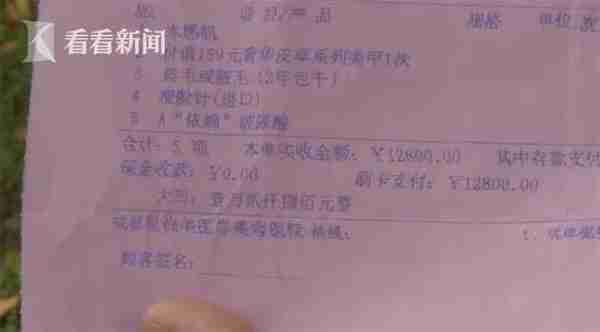 看看新闻
No. 项目/产品 规格 单位 次
水感肌
2 价值159元奢华皮草系列美甲1次
3 唇毛或腋毛(2年包干)
4 瘦脸针(进口)
5 A"依婉"玻尿酸
合计: 5 项 本单实收金额: ￥12800.00 其中存款支付
现金收款: ￥0.00 刷卡支付: ￥12800.00
大写: 壹万贰仟捌佰元整
医学美容医院
顾客签名: